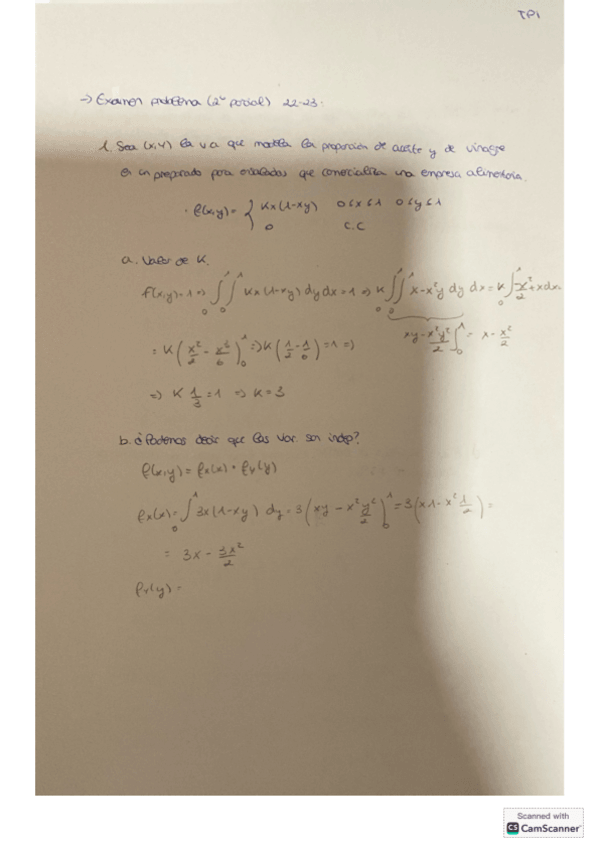 TP1
→ Examen problema (2º parcial) 22-23.
1. Sea (X,Y) la va que modela la proporción de aceite y de vinagre
en un preparado para ensaladas que comercializa una empresa alimentaria.
· f(x,y) = { Kx(1-xy) 0≤x≤1 0≤y≤1
0 c.c
a. Valor de K.
f(x,y)=1 => ∫₀¹ ∫₀¹ Kx(1-xy) dy dx = 1 => K ∫₀¹ ∫₀¹ x-x²y dy dx = K ∫₀¹ -x²/2 + x dx
xy - x²y²/2 ]₀¹ = x - x²/2
= K ( x²/2 - x³/6 )₀¹ => K ( 1/2 - 1/6 ) = 1 =>
=> K 1/3 = 1 => K = 3
b. ¿Podemos decir que las var. son indep?
f(x,y) = fx(x) · fy(y)
fx(x) = ∫₀¹ 3x(1-xy) dy = 3 ( xy - x² y²/2 )₀¹ = 3 ( x1 - x² 1/2 ) =
= 3x - 3x²/2
fy(y) =
Scanned with
CS CamScanner